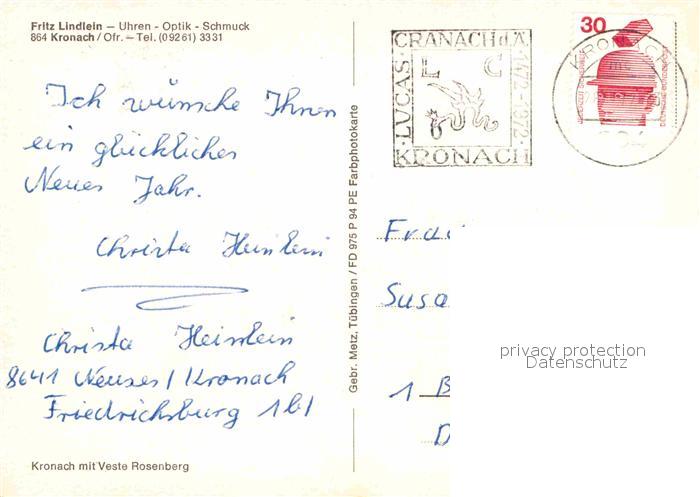 Fritz Lindlein — Uhren - Optik - Schmuck
864 Kronach / Ofr. – Tel. (09261) 3331
Ich wünsche Ihnen
ein glückliches
Neues Jahr.
Christa Heinlein
Christa Heinlein
8641 Neuses / Kronach
Friedrichsburg 1b/
Kronach mit Veste Rosenberg
Gebr. Metz, Tübingen / FD 975 P 94 PE Farbphotokarte
LUCAS · CRANACH d.Ä 1472-1972 ·
L C
KRONACH
30
KRONACH
DEUTSCHE BUNDESPOST
Frau
Susa
1 B
D
privacy protection
Datenschutz